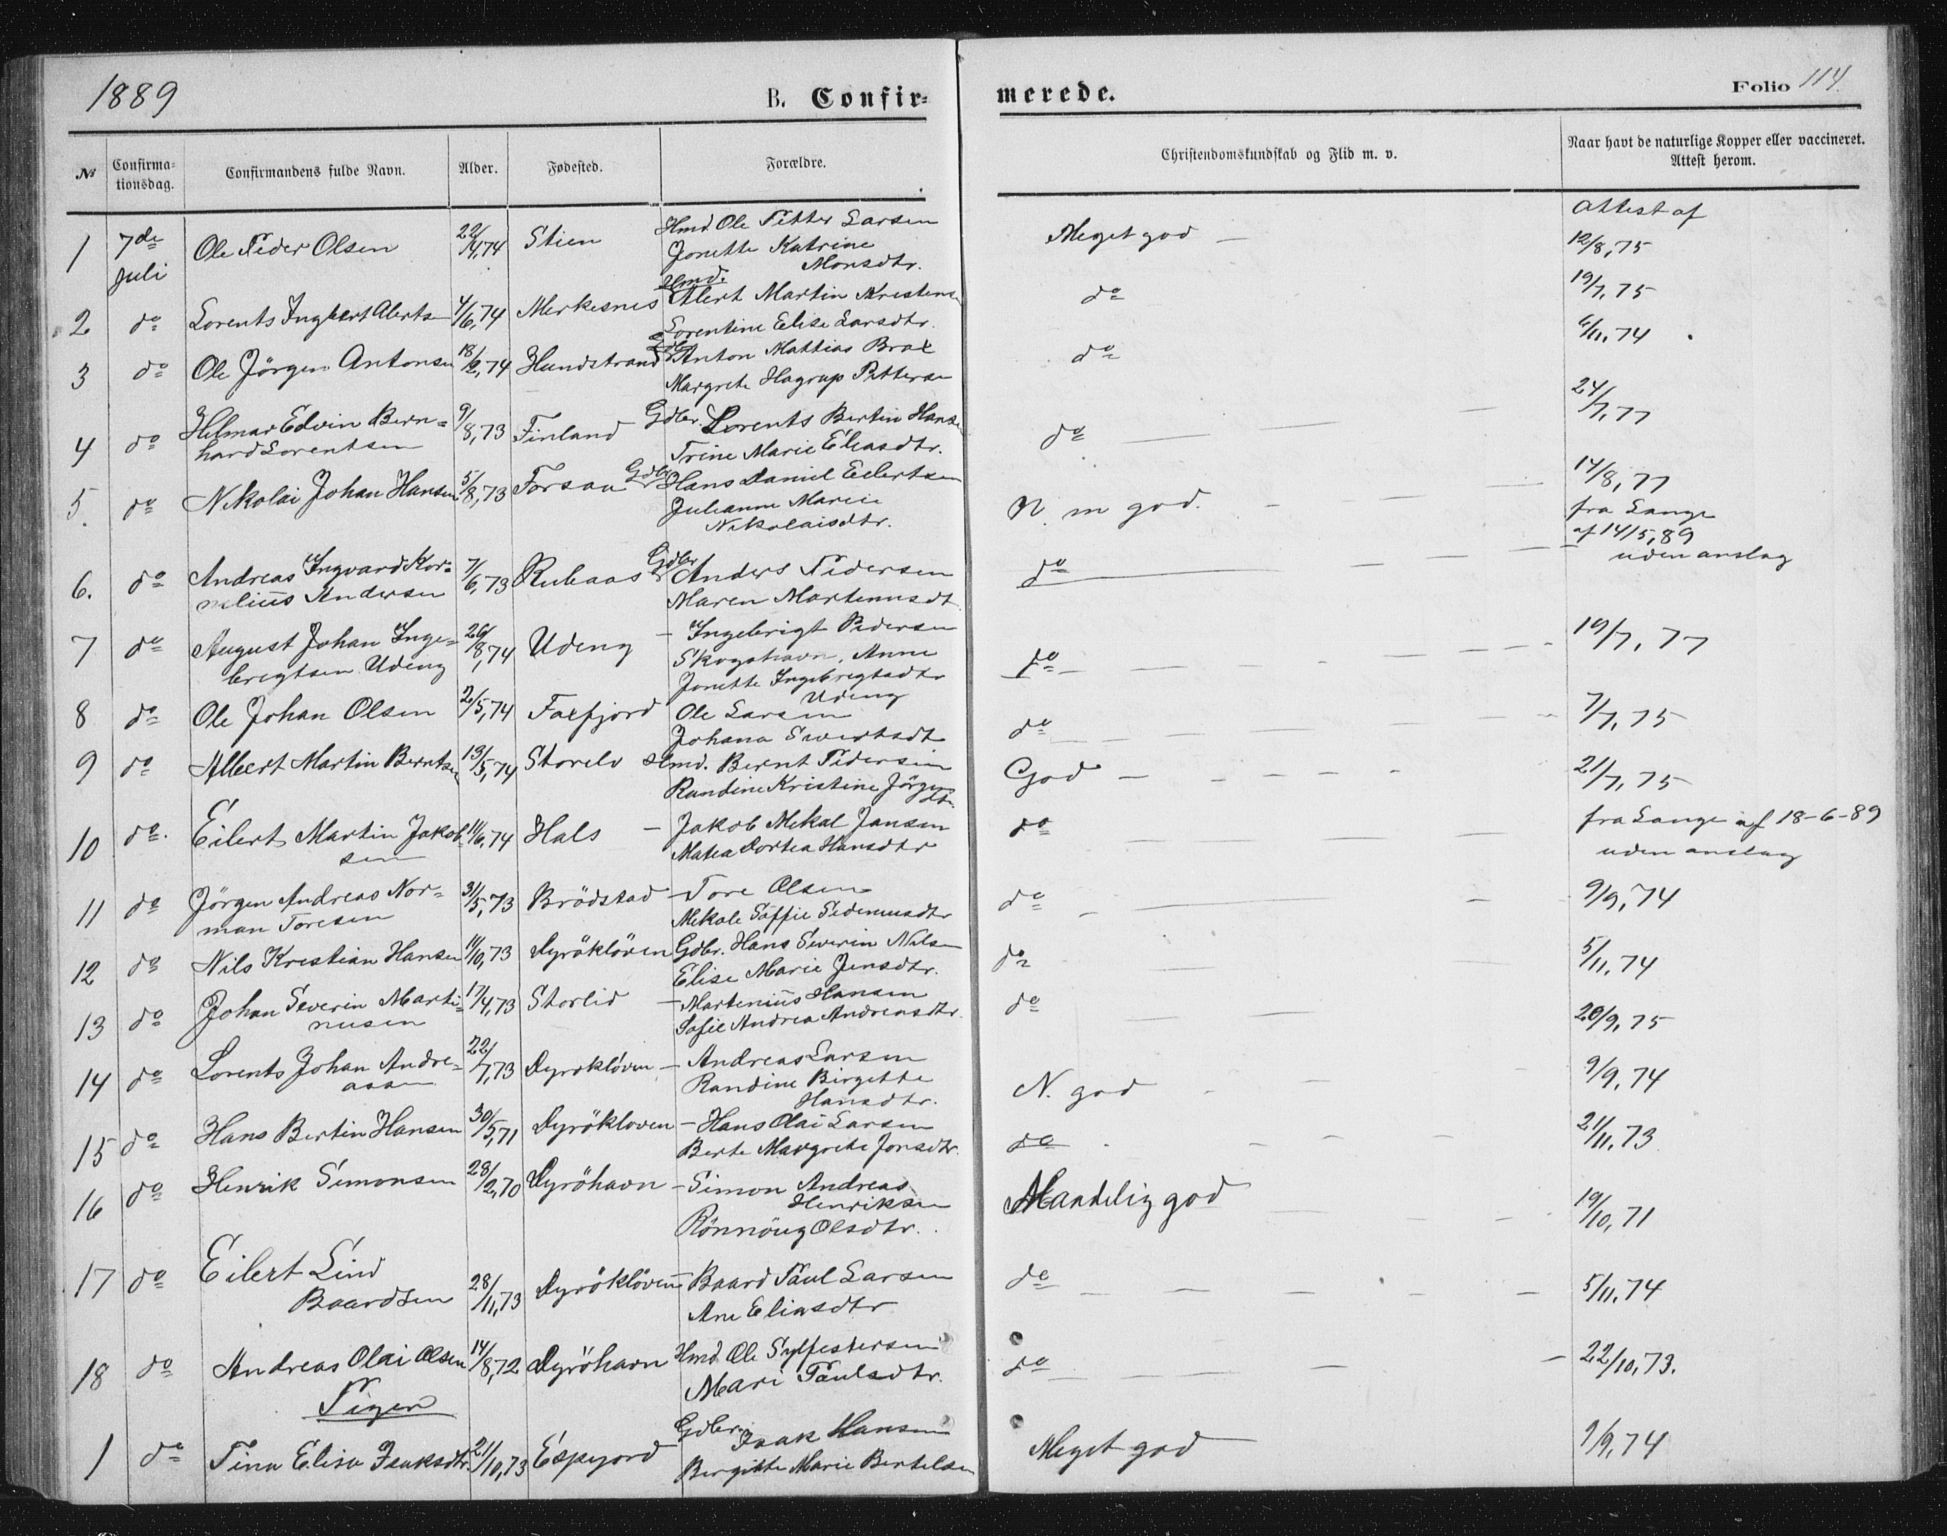 1889 B. Confir- merede. Folio 114.
№ Confirma-tionsdag. Confirmandens fulde Navn. Alder. Fødested. Forældre. Christendomskundskab og Flid m. v. Naar havt de naturlige Kopper eller vaccineret. Attest herom.
1 7de Juli Ole Peder Olsen 22/4,74 Stien Hmd. Ole Petter Larsen Meget god Attest af
Jonette Katrine Monsdtr. 12/8,75
2 do Lorents Ingbert Alerts 4/6,74 Merkesnes Hmd. Alert Martin Kristens do 19/7,75
Lorentine Elise Larsdtr.
3 do Ole Jörgen Antonsen 18/2,74 Hundstrand Anton Mattias Brox do 6/11,74
Margrete Hagrup Pettersen
4 do Hilmar Edvin Bern= 9/8,73 Finland Gdbr. Lorents Bertin Hans do 24/7,77
hard Lorentsen Trine Marie Eliasdtr.
5. do Nikolai Johan Hansen 5/8,73 Forsaa Gdbr Hans Daniel Eilertsen N. m god. 14/8,77
Julianne Marie fra Lange
Nikolaisdtr. af 14/5,89
uden anslag
6. do Andreas Ingvard Kor= 7/6,73 Rubaas Gdbr Anders Pedersen do
nelius Andersen Maren Martenusdt
7 do August Johan Inge= 26/8,74 Udeng – Ingebrigt Pedersen do 19/7,77
brigtsen Udeng Skogshavn, Anne
Jonette Ingebrigtsdtr
Udeng
8 do Ole Johan Olsen 2/5,74 Faxfjord Ole Larsen do 7/7,75
Johana Sivertsdt
9 do Albert Martin Berntsen 13/5,74 Storelv Hmd. Bernt Pedersen God 21/7,75
Randine Kristine Jörgensdtr
10 do. Eilert Martin Jakob 11/6,74 Hals – Jakob Mekal Jansen do fra Lange af 18-6-89
sen Matea Dortea Hansdtr uden anslag
11 do Jörgen Andreas Nor= 31/5,73 Brödstad – Tore Olsen do 9/9,74
man Toresen Mekale Soffie Pedersdtr
12 do Nils Kristian Hansen 11/10,73 Dyröklöven Gdbr. Hans Severin Nilsen do 5/11,74
Elise Marie Jensdtr.
13 do Johan Severin Marti= 17/4,73 Storlid – Martenius Hansen do 20/9,75
nusen Sofie Andrea Andreasdtr.
14 do Lorents Johan Andre= 22/7,73 Dyröklöven – Andreas Larsen N. god 9/9,74
assen Randine Birgette
Hansdtr.
15 do Hans Bertin Hansen 30/5,71 Dyröklöven – Hans Olai Larsen do 21/11,73
Berte Margrete Jonsdtr.
16 do Henrik Simonsen 28/2,70 Dyröhavn – Simon Andreas Maadelig god 19/10,71
Henriksen
Rönnöug Olsdtr.
17 do Eilert Lind 28/11,73 Dyröklöven – Baard Paul Larsen do 5/11,74
Baardsen Ane Eliasdtr
18 do Andreas Olai Olsen 14/8,72 Dyröhavn Hmd. Ole Sylfestersen do 22/10,73.
Mari Paulsdtr.
Piger
1 do Tina Elisa Isaksdtr. 21/10,73 Espejord Gdbr. Isak Hansen Meget god 9/9,74
Bergitte Marie Bertelsen